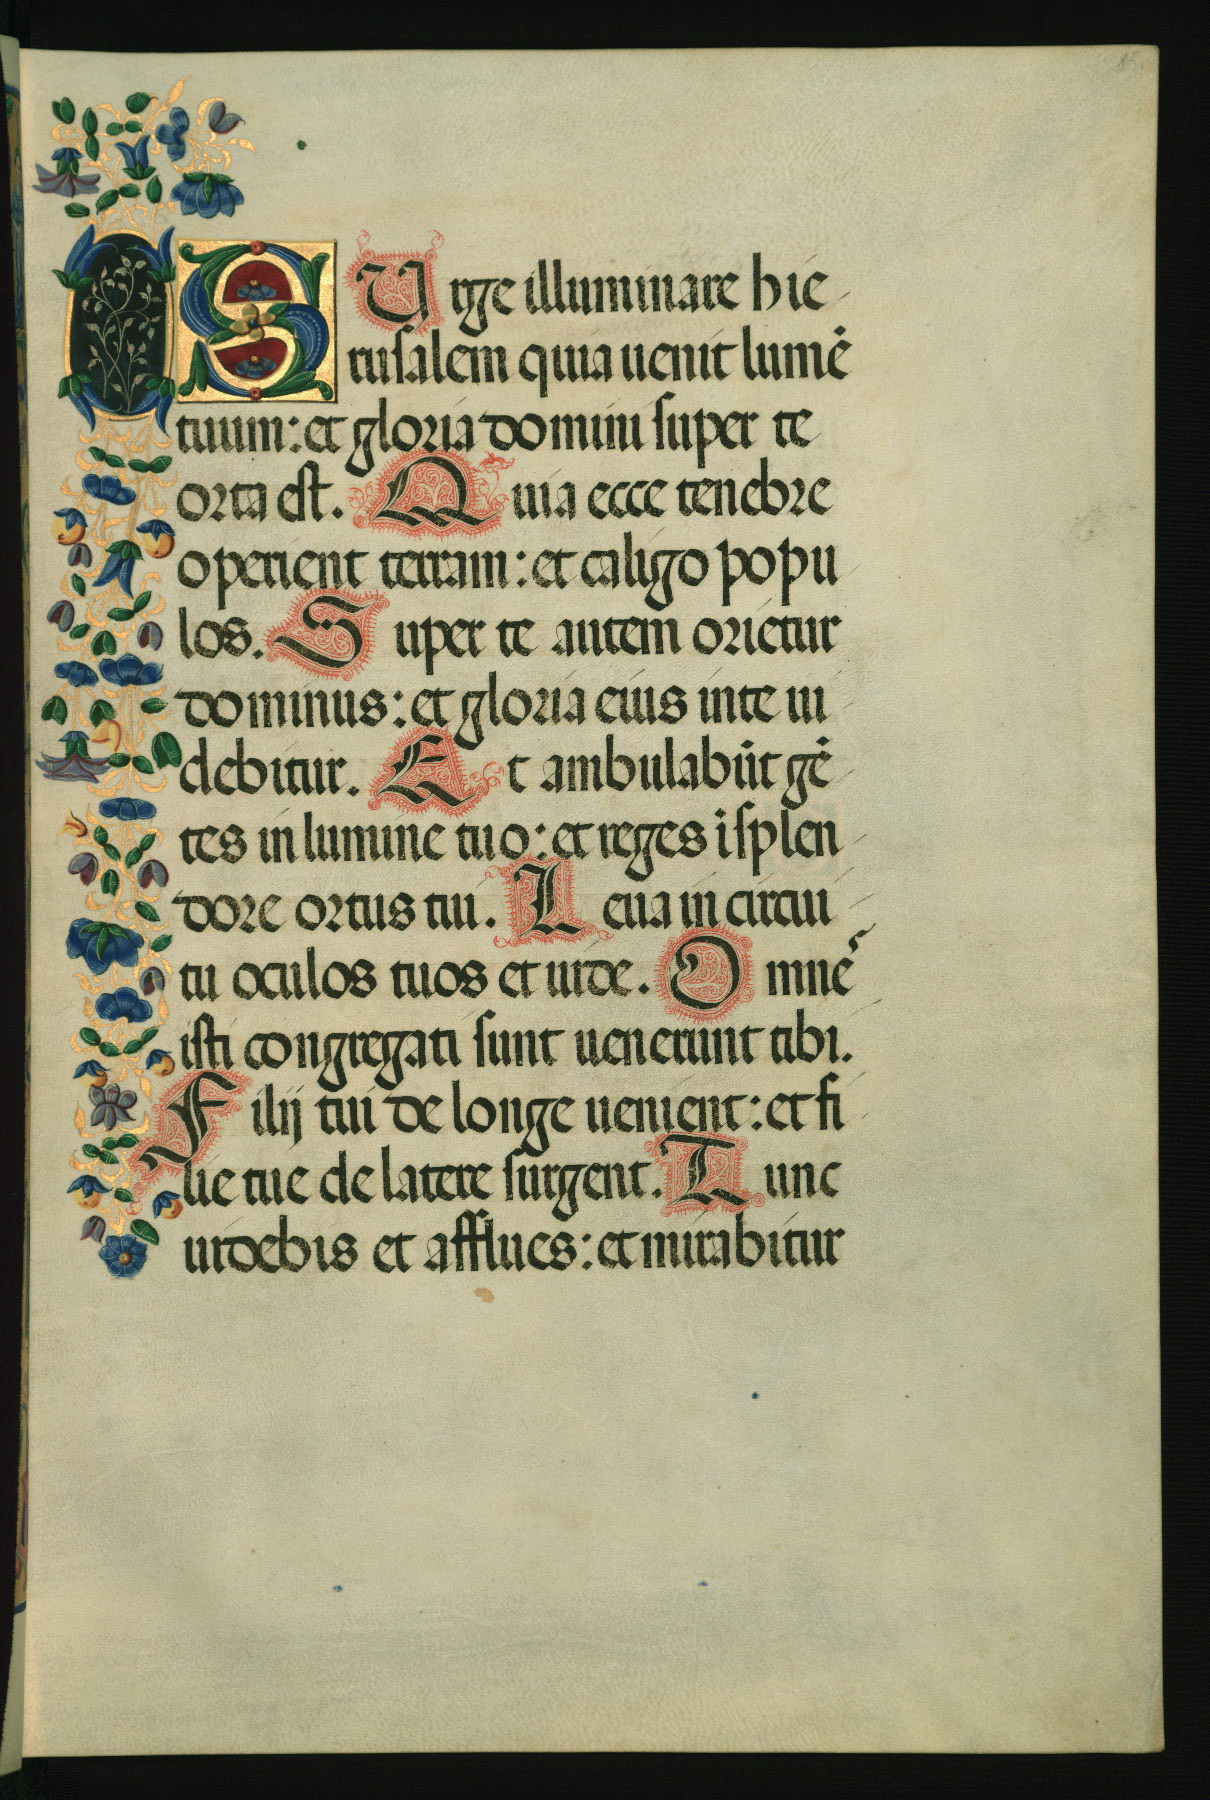 SUrge illuminare hie
rusalem quia uenit lumē
tuum: et gloria domini super te
orta est. Quia ecce tenebre
operient terram: et caligo popu
los. Super te autem orietur
dominus: et gloria eius inte ui
debitur. Et ambulabūt gē
tes in lumine tuo: et reges ī splen
dore ortus tui. Leua in circui
tu oculos tuos et uide. Omnē
isti congregati sunt uenerunt tibi.
Filij tui de longe uenient: et fi
lie tue de latere surgent. Tunc
uidebis et afflues: et mirabitur